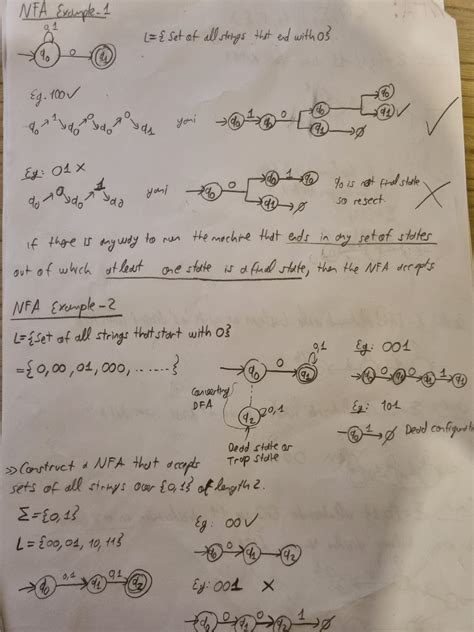 NFA Example-1
0,1
q0 0 q1
L={Set of all strings that end with 0}
Eg. 100 ✓
q0 1 q0 0 q0 0 q1
yani
q0 1 q0 0 q0 q0
q1 q1 ✓
∅
Eg: 01 ×
q0 0 q0 1
yani
q0 0 q0 1 q0
q1 ∅
q0 is not final state
so reject.
if there is any way to run the machine that ends in any set of states
out of which atleast one state is a final state, then the NFA accepts
NFA Example-2
L={Set of all strings that start with 0}
={0,00,01,000,......}
q0 0 q1 0,1
Converting
DFA
q2 0,1
Dead state or
Trap state
Eg: 001
q0 0 0 q1 1 q1
Eg: 101
q0 1 ∅ Dead configuratio
>> Construct a NFA that accepts
sets of all strings over {0,1} of length 2.
Σ={0,1}
L={00,01,10,11}
q0 0,1 q1 0,1 q2
Eg: 00 ✓
q0 0 q1 0 q2
Eg: 001 ×
q0 0 q1 0 q2 1 ∅